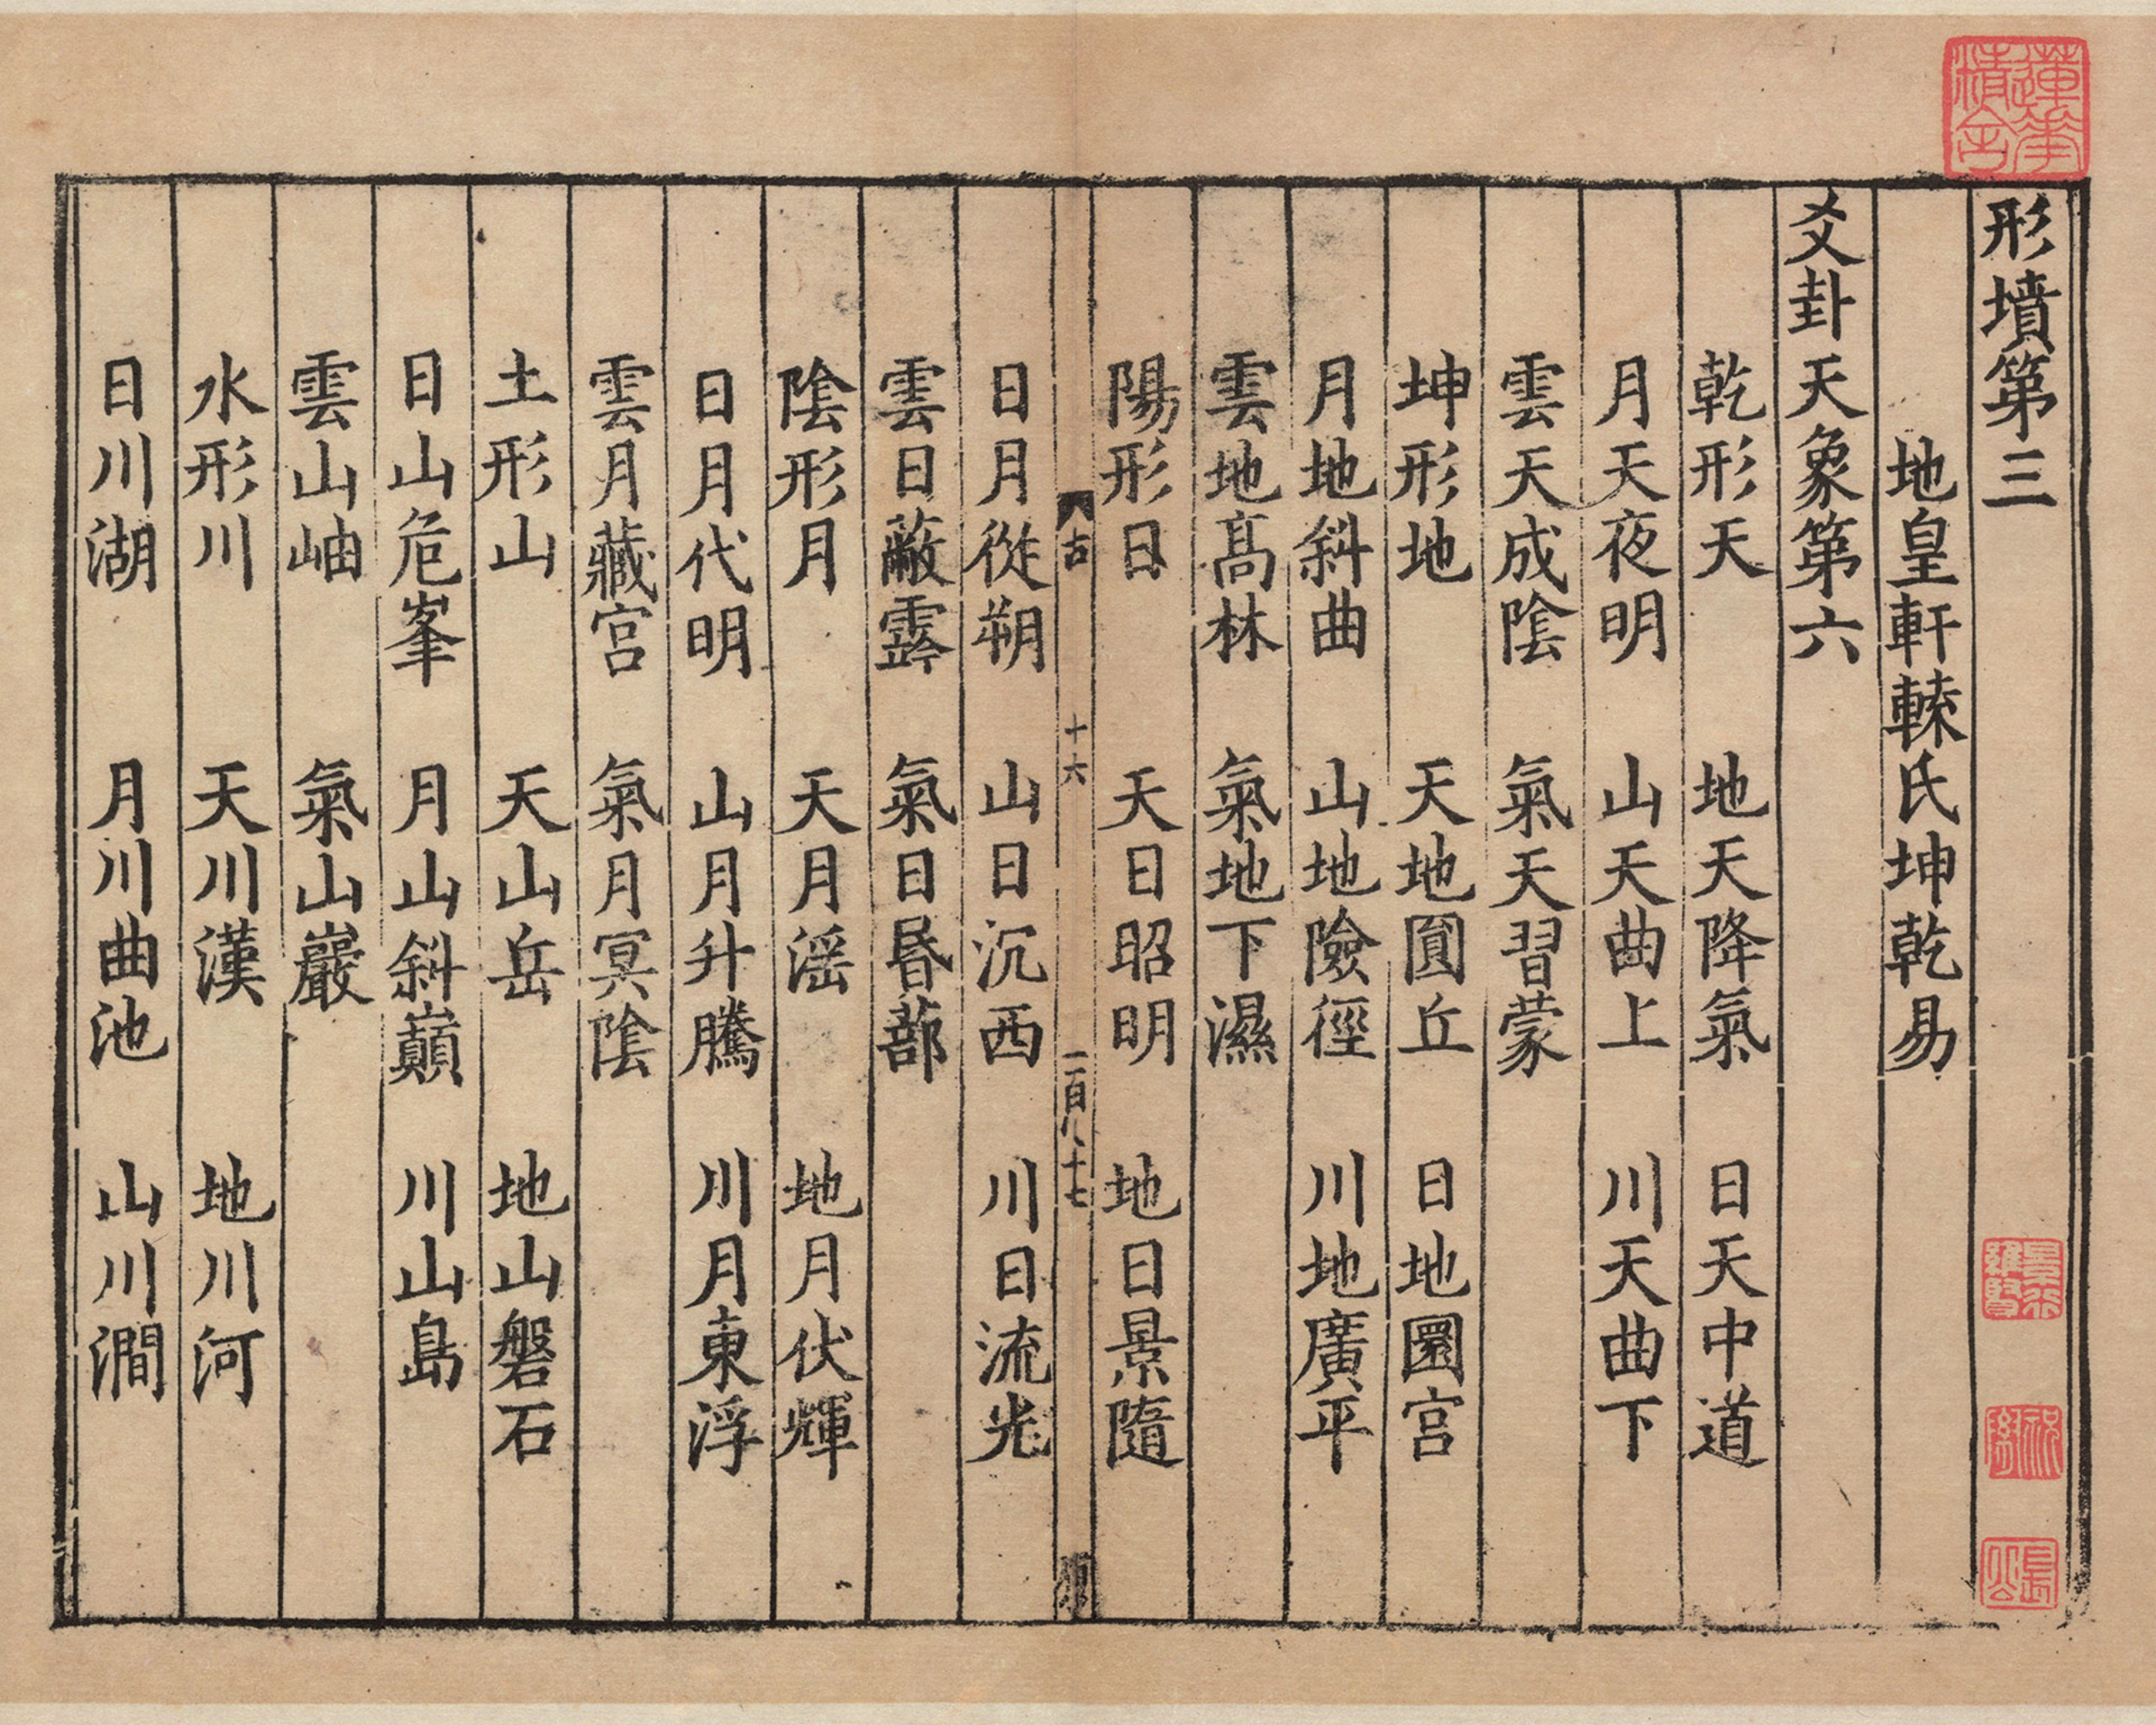 形墳第三
地皇軒轅氏坤乾易
爻卦天象第六
乾形天 地天降氣 日天中道
月天夜明 山天曲上 川天曲下
雲天成陰 氣天習蒙
坤形地 天地圓丘 日地圜宮
月地斜曲 山地險徑 川地廣平
雲地高林 氣地下濕
陽形日 天日昭明 地日景隨
古 十六 二百八十七
日月從朔 山日沉西 川日流光
雲日蔽霧 氣日昬蔀
陰形月 天月滛 地月伏輝
日月代明 山月升騰 川月東浮
雲月藏宮 氣月冥陰
土形山 天山岳 地山磐石
日山危峯 月山斜巔 川山島
雲山岫 氣山巖
水形川 天川漢 地川河
日川湖 月川曲池 山川澗
蓮華精舍